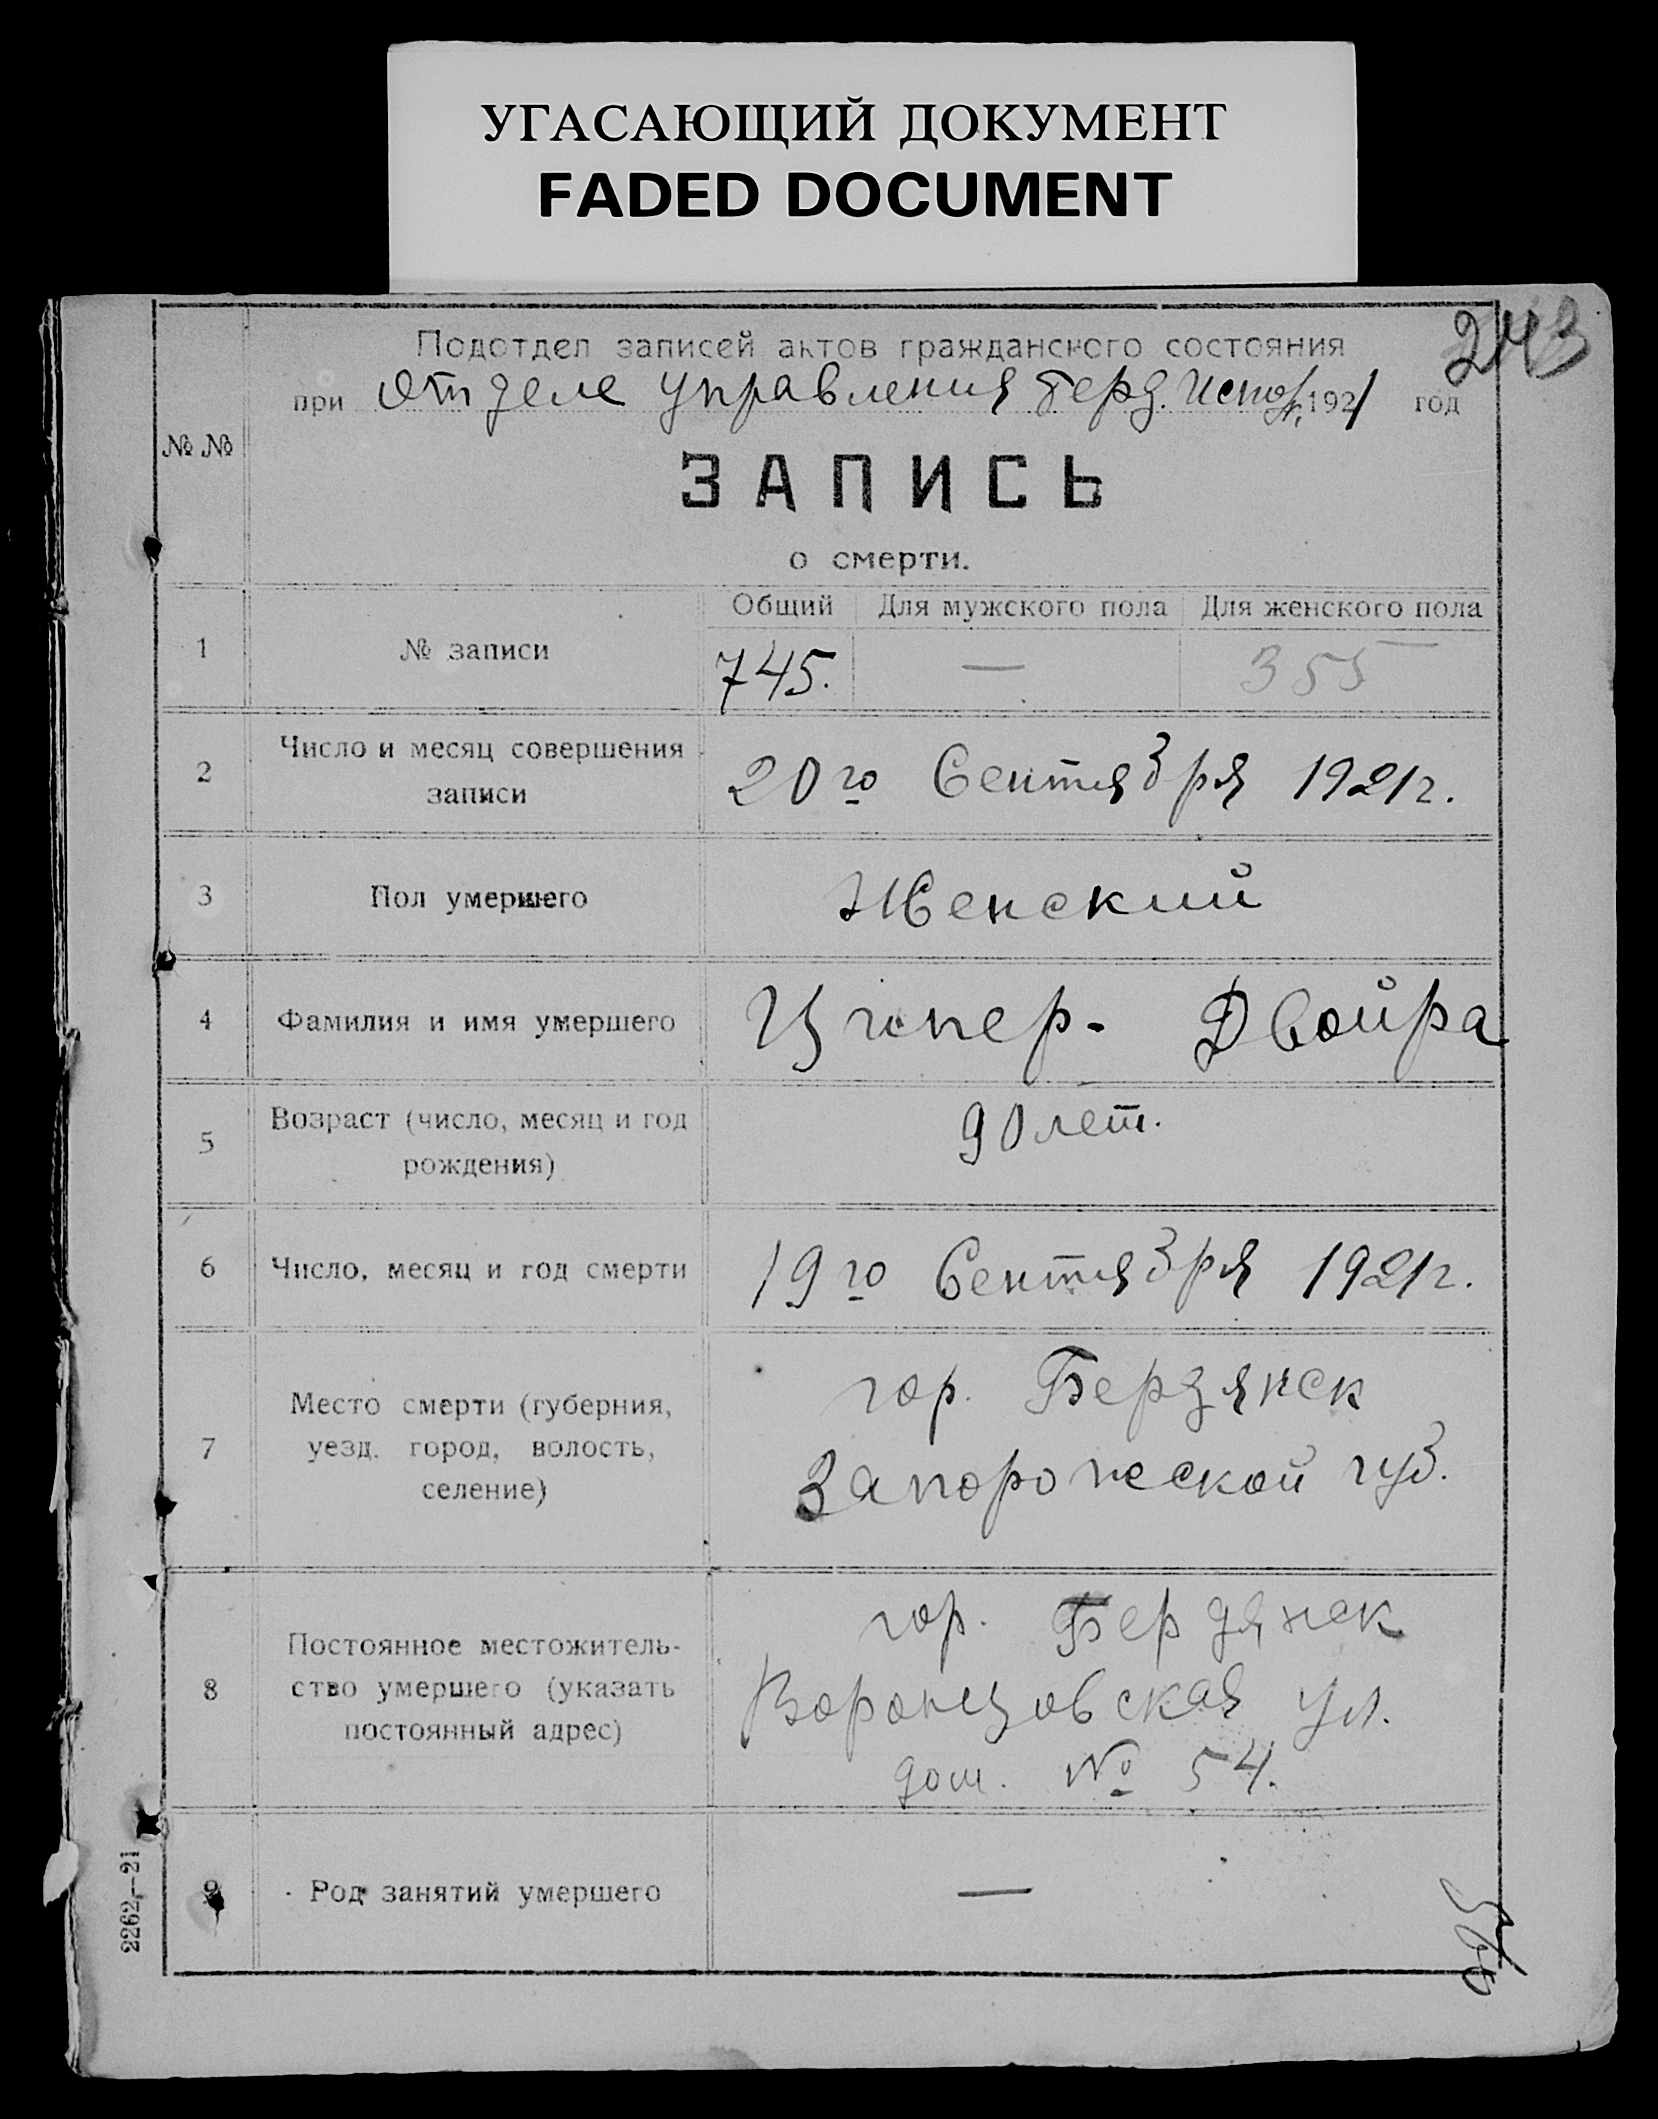 УГАСАЮЩИЙ ДОКУМЕНТ
FADED DOCUMENT
243
Подотдел записей актов гражданского состояния
при Отделе Управления Берд. Исполк. 1921 год
№ №
ЗАПИСЬ
о смерти.
Общий Для мужского пола Для женского пола
1 № записи 745. — 355
2 Число и месяц совершения
записи
20го Сентября 1921г.
3 Пол умершего Женский
4 Фамилия и имя умершего Ципер- Двойра
5 Возраст (число, месяц и год
рождения)
90 лет.
6 Число, месяц и год смерти 19го Сентября 1921г.
7 Место смерти (губерния,
уезд, город, волость,
селение)
гор. Бердянск
Запорожской губ.
8 Постоянное местожитель-
ство умершего (указать
постоянный адрес)
гор. Бердянск
Воронцовская ул.
дом. № 54.
9 Род занятий умершего —
2262—21